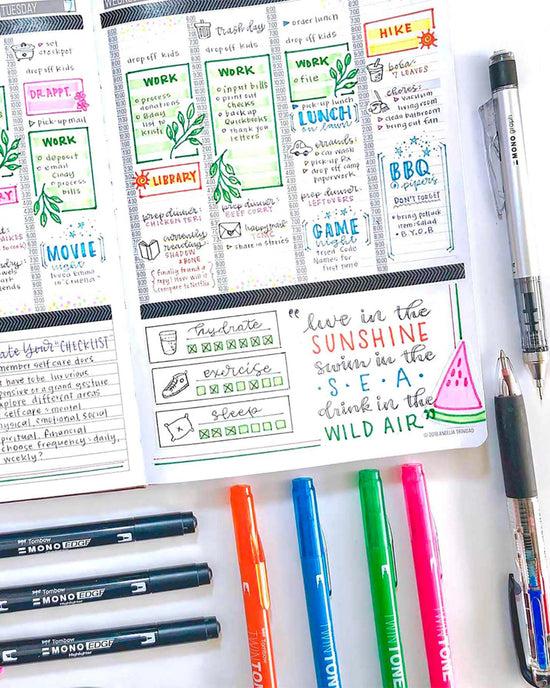 TUESDAY
set
crockpot
drop off kids
DR. APPT.
pick up mail
WORK
deposit
email
Cindy
process
bills
MOVIE
night
drop off kids
WORK
process
donations
eBay
LIBRARY
prep dinner
CHICKEN TERI
currently
reading
SHADOW
& BONE
finally found a
copy! Now will it
compare to Netflix
trash day
drop off kids
WORK
input bills
print out
checks
backup
Quickbooks
thank you
letters
prep dinner
BEEF CURRY
happy mail
share in stories
order lunch
drop off kids
WORK
file
pick-up lunch
LUNCH
errands
car wash
pick-up Rx
drop off camp
paperwork
prep dinner
LEFTOVERS
GAME
night
tried Code
Names for
first time
HIKE
boba
7 LEAVES
chores
vacuum
living room
clean bathroom
bring out fan
BBQ
DON'T FORGET
bring potluck
item-salad
B.Y.O.B
ate Your CHECKLIST
member self care does
t have to be luxurious
pensive or a grand gesture
xplore different areas
self care - mental
hysical, emotional, social
piritual, financial
choose frequency: daily,
weekly?
hydrate
exercise
sleep
"live in the
SUNSHINE
swim in the
·S·E·A·
drink in the
WILD AIR"
© 2018 ANGELIA TRINIDAD
MONO graph
Tombow
MONO EDGE
Highlighter
Tombow
MONO EDGE
Highlighter
Tombow
MONO EDGE
Highlighter
Tombow
TWINTONE
TWINTONE
TWINTONE
TWINTONE